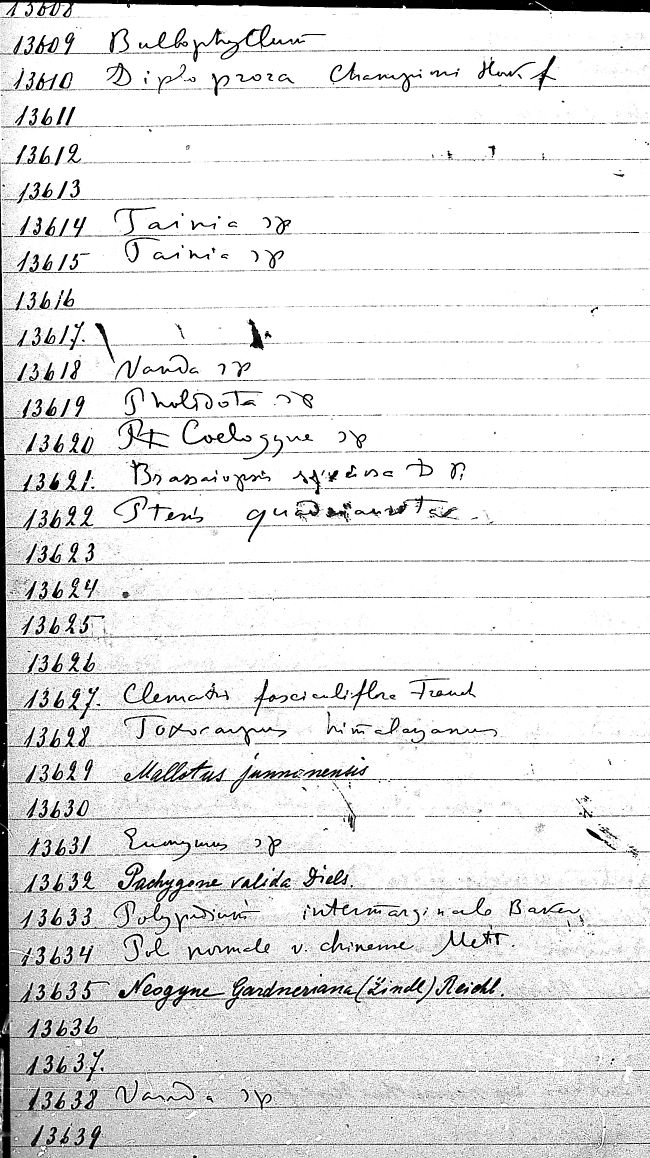 13608
13609 Bulbophyllum
13610 Diploprora Championi Hook f
13611
13612
13613
13614 Tainia sp
13615 Tainia sp
13616
13617.
13618 Vanda sp
13619 Pholidota sp
13620 Coelogyne sp
13621. Brassaiopsis D
13622 Pteris quadriaurita
13623
13624
13625
13626
13627. Clematis fasciculiflora Franch
13628 Toxocarpus himalayanus
13629 Mallotus junnanensis
13630
13631 Evonymus sp
13632 Pachygone valida Diels.
13633 Polypodium intermarginale Baker
13634 Pol normale v. chinense Mett.
13635 Neogyne Gardneriana (Lindl) Reichl.
13636
13637.
13638 Vanda sp
13639